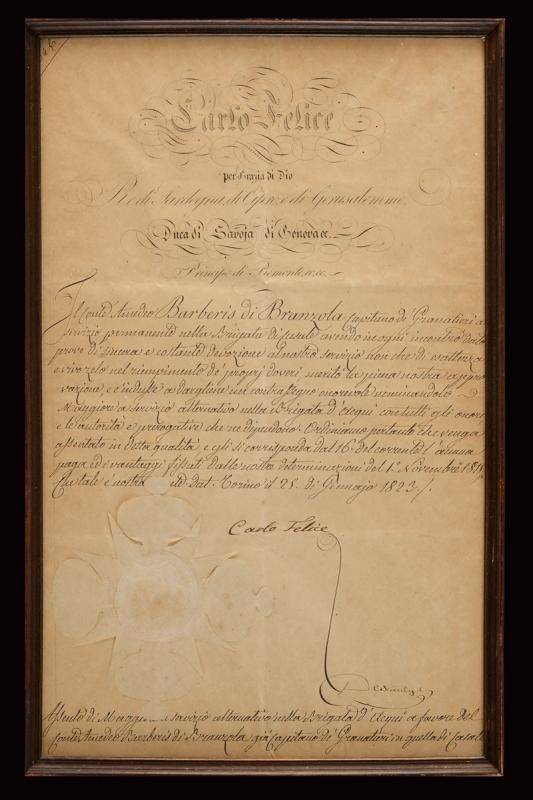 Carlo Felice
per Grazia di Dio
Re di Sardegna, di Cipro, e di Gerusalemme
Duca di Savoja di Genova ec.
Principe di Piemonte, ec. ec.
Il Conte Amedeo Barberis di Branzola Capitano di Granatieri a
servizio permanente nella Brigata di Casale avendo in ogni incontro dato
prove di sincera e costante devozione al nostro servizio non che di esattezza
e vivo zelo nel riempimento de' proprj doveri meritò la piena nostra appro
vazione, e c'indusse a dargliene un contrassegno onorevole nominandolo
Maggiore a servizio alternativo nella Brigata d'Acqui con tutti gli onori
le autorità e prerogative che ne dipendono. Ordiniamo pertanto che venga
assentato in detta qualità, e gli si corrisponda dal 16 del corrente l'annua
paga ed i vantaggi fissati dalle nostre determinazioni del 1° Novembre
Che tale è nostra Dat. Torino il 28 di Gennajo 1823
Carlo Felice
Assento di Maggiore a servizio alternativo nella Brigata d'Acqui a favore del
Conte Amedeo Barberis di Branzola già Capitano di Granatieri in quella di Casale